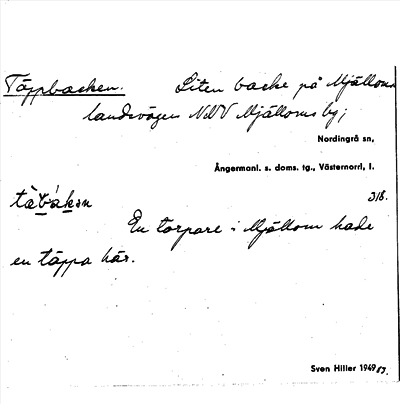 Täppbacken. Liten backe på Mjälloms
landsvägen NNV Mjälloms by;
Nordingrå sn,
Ångermanl. s. doms. tg., Västernorrl, l.
318.
En torpare i Mjällom hade
en täppa här.
Sven Hiller 1949